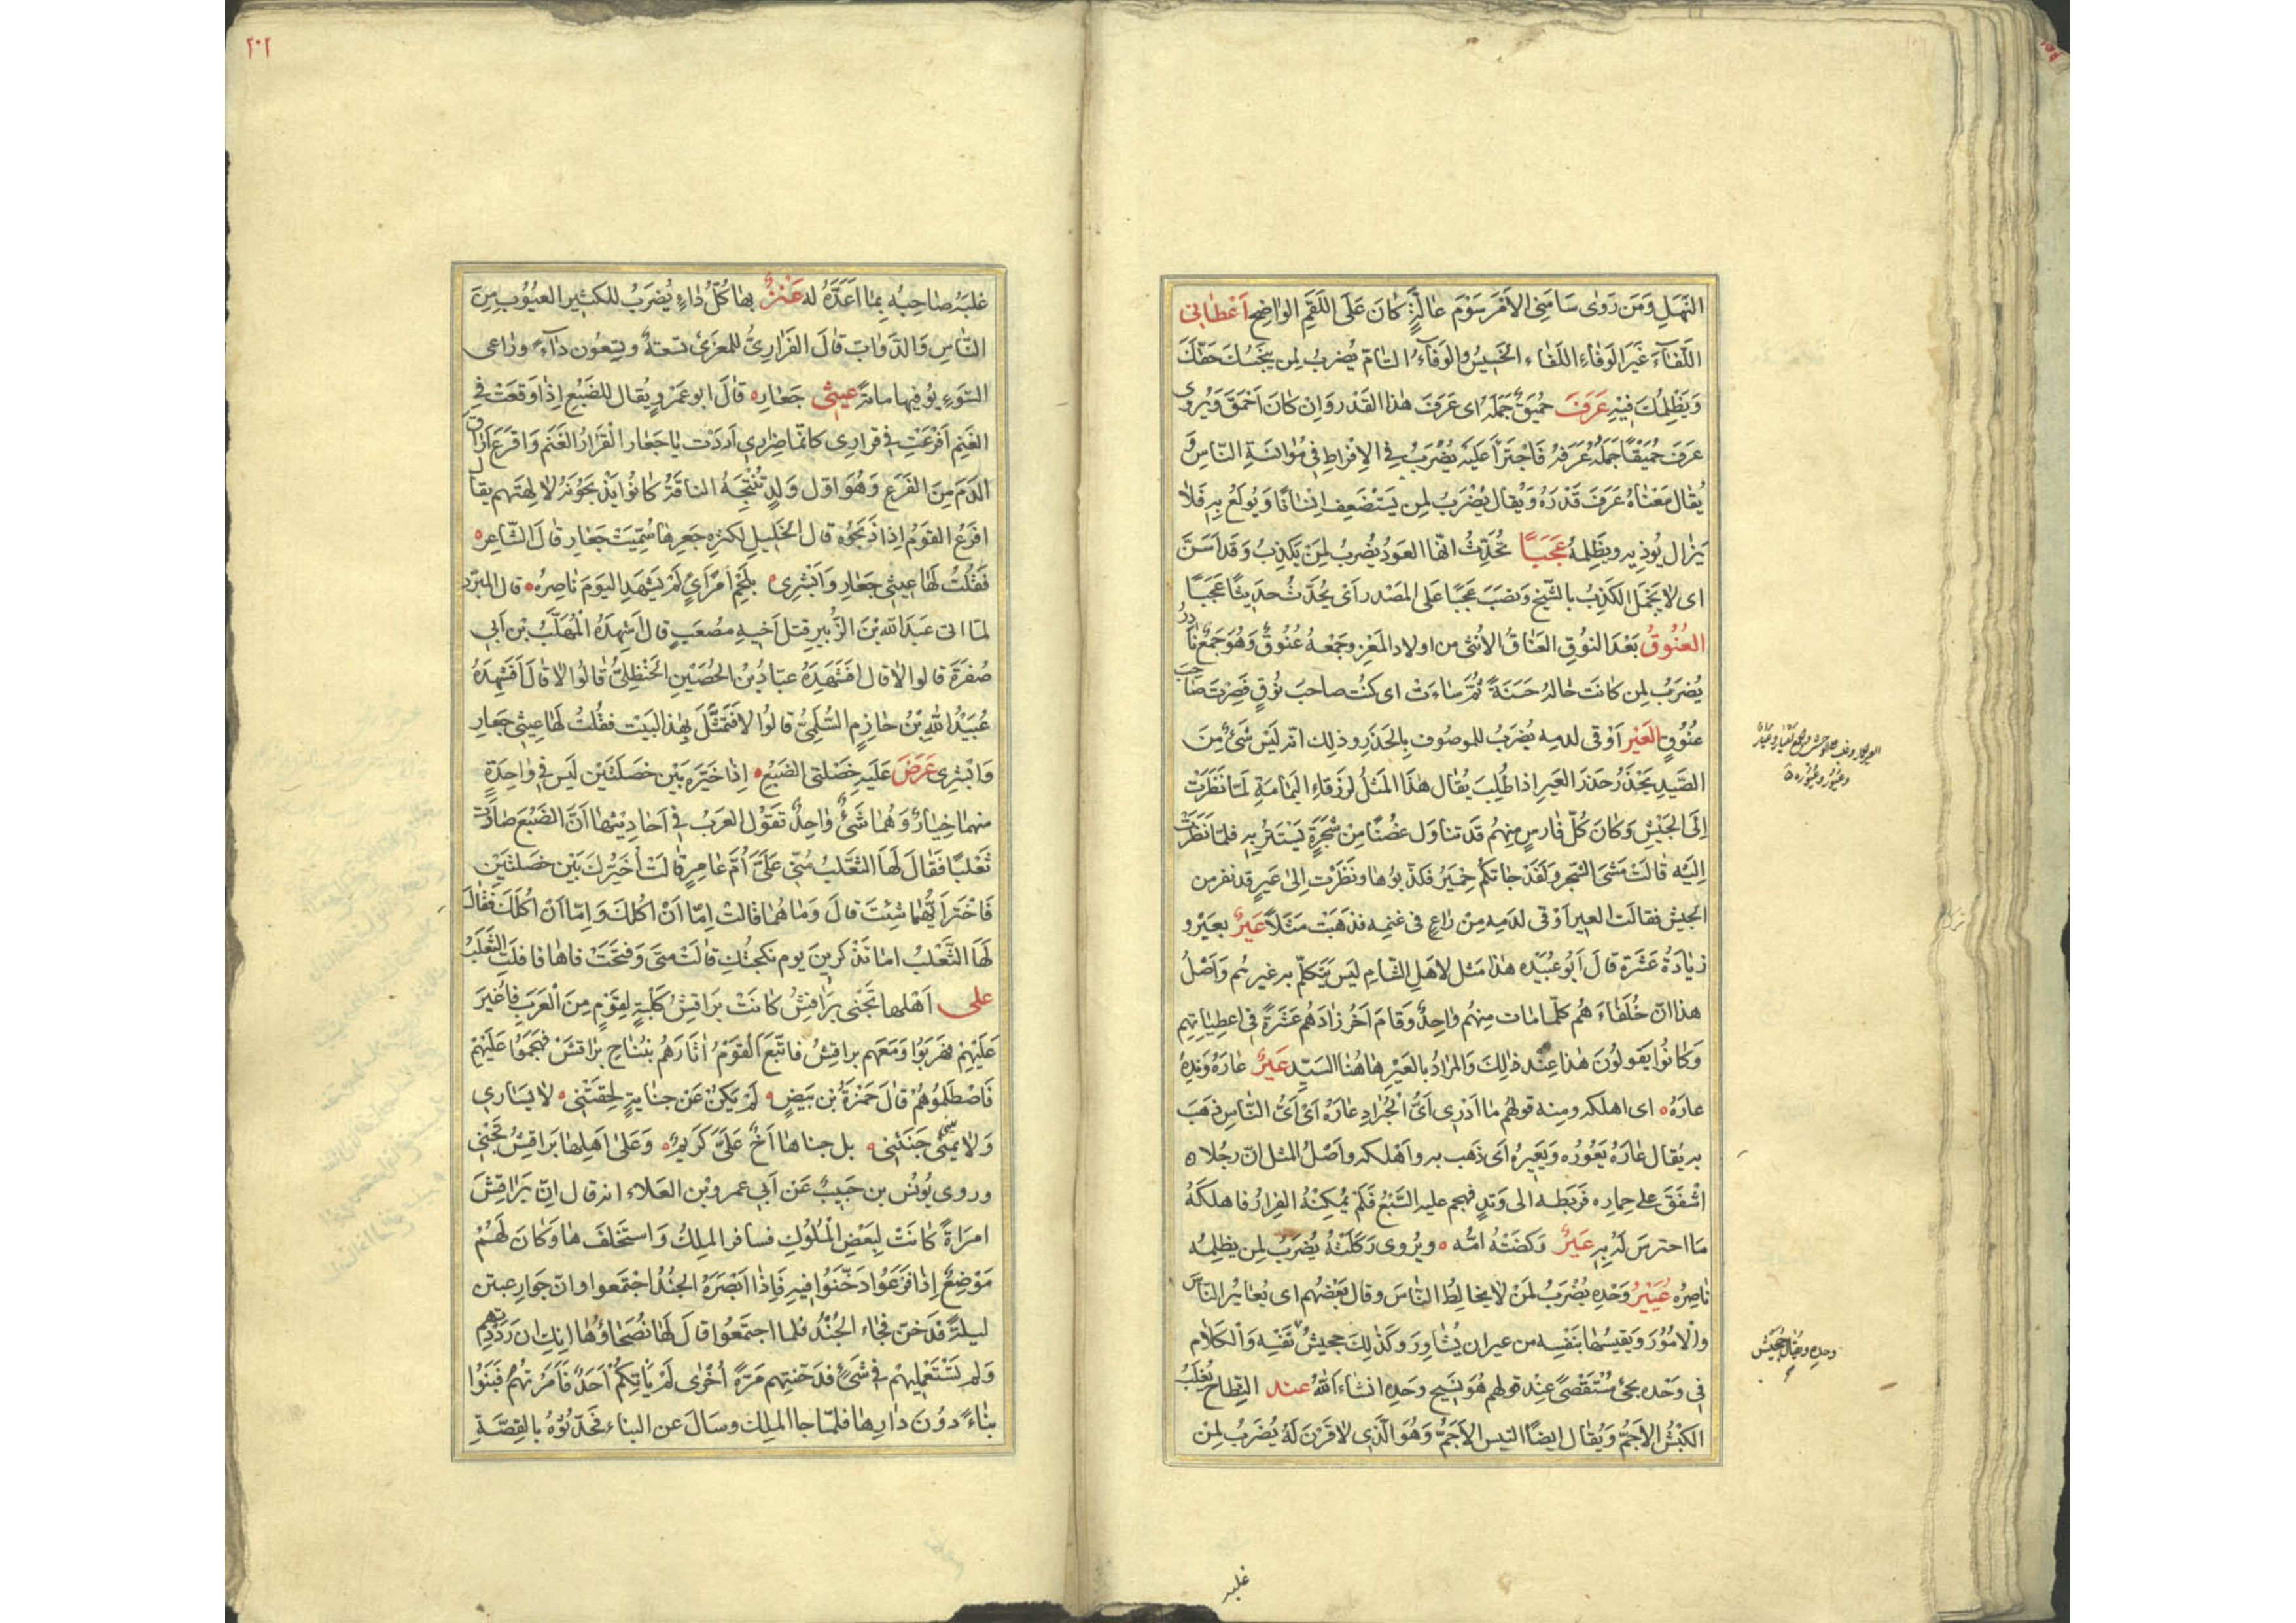 النَّهَلِ وَمَن رَوٰى سَامَنِى الاَمْرَ سَوْمَ عٰالَّةٍ كٰانَ عَلَى اللَقَمِ الوٰاضِحِ اَعْطٰانِى
اللَّفٰآءَ غَيْرَ الوَفٰاءِ اللفَاء الخَسِيسُ وَالوَفَآءُ التٰامّ يُضربُ لِمن يَبْخَسُكَ حَقّكَ
وَيَظْلِمُكَ فِيْهِ عَرَفَ حُمَيقٌ جَمَلَهُ اى عَرَفَ هٰذا القَدْرَ وَاِنْ كٰانَ اَحْمَقَ وَيُرْوى
عَرَفَ حُمَيْقًا جَمَلُهُ عَرَفَهُ فَاجْتَرَأَ عَلَيْه يُضْرَبُ فِى الاِفْرٰاطِ فِى مُؤٰانَسَةِ النّاسِ وَ
يُقٰال مَعْنٰاهُ عَرَفَ قَدْرَهُ وَيُقٰال يُضْرَبُ لِمن يَسْتَضْعِف اِنسٰانًا وَيُولَعُ بِهِ فَلاٰ
يَزٰال يُوذيهِ ويظْلِمهُ عَجَبًا تُحَدِّثُ ايّهَا العَوْدُ يُضربُ لِمَنْ يَكْذِبُ وَقَد اَسَنَّ
اى لا يَجْمَلُ الكَذِبُ بالشّيخ وَنصَبَ عَجَبًا عَلى المَصْدر اَىْ يُحَدّثُ حدَيثًا عَجَبًا
العُنُوقُ بَعْدَ النوُقِ العَنَاقُ الاُنثى من اولاد المَعْزِ وجَمْعهُ عُنُوقٌ وَهُوَ جَمْعٌ نٰادرٌ
يُضرَبُ لِمن كٰانَت حٰالهُ حَسَنَةً ثُمَّ سٰاءَت اى كنُت صاحبَ نُوقٍ فَصِرْتَ صٰاحِبَ
عنُوُقٍ العَيْر اَوْقى لدمِه يُضرَبُ للموصُوف بِالحَذَرِ وذلِك انّه ليَسَ شَىْءٌ مِنَ
الصَّيدِ يَحْذَرُ حَذَرَ العَيرِ اذا طُلِبَ يُقٰال هٰذَا المَثَلُ لزَرْقٰاءِ اليَمٰامَةِ لَمّا نَظَرَتْ
اِلَى الجَيْشِ وَكٰانَ كُلّ فٰارسٍ مِنهُم قَد تناوَل غصْنًا مِنْ شَجَرَةٍ يَسْتَتِرُ بِهِ فلمّا نَظَرَتْ
اِلَيْهِ قٰالَتْ مَشَى الشّجر وَلَقَدْ جٰاتَكُم حِمْيَرُ فَكَذّبوُهٰا ونَظَرْت اِلىٰ عَيرٍ قد نفر من
الجَيش فقالَت العيراَوْقى لدَمِه مِنْ رٰاعٍ فى غنِمه فذهَبَتْ مَثَلًا عَيرٌ بعَيْر و
زيٰادَةُ عَشَرَة قٰالَ اَبُو عُبَيْده هٰذا مَثل لاَهِلِ الشّامِ ليَس يَتَكلّم به غيرهم وَاَصْلُ
هذا انّ خُلَفٰاءَ هُم كلّمٰا مٰات مِنهُم وٰاحِدٌ وقٰامَ اٰخَرُ زٰادَهُم عَشَرَةً فى اعطِيٰاتِهِم
وَكٰانُوا يَقولوُنَ هٰذا عِنْد ذٰلِكَ وَالمرٰادُ بالعَيْرِ هٰاهُنٰا السَيّد عَيرٌ عٰارَهُ وَتِدُهُ
عٰارَهُ ۰ اى اهلكه ومِنه قولهُم مٰا اَدْرى اَىُّ الجَرٰادِ عٰارَهُ اَىْ اَىُّ النّاسِ ذهَبَ
به يُقٰال عٰارَهُ يَعُورُه وَيَعِيرُه اَى ذَهَب به واَهْلكه واَصْلُ المثل انّ رجُلا ۰
اشْفَقَ على حِماره فرَبطَه الى وَتِدٍ فهجم عليه السَّبْعُ فَلَمْ يُمكِنْهُ الفِرارُ فاهلكهُ
مٰا احترسَ لَه بِهِ عَيرٌ رَكَضَتْهُ امّه ۰ ويُروى رَكَلَتْهُ يُضربُ لِمن يظلِمُه
نٰاصِرُه عُيَيْرُ وَحْدِه يُضْرَبُ لِمَنْ لا يخالِطُ النّاسَ وقال بَعْضهُم اى يُعٰايرُ النّاسَ
والامُوُرَ وَيقيسُهٰا بنَفْسِه من غير ان يُشٰاوِرَ وَكذٰلِكَ جحيشُ نَفْسِه وَالكَلٰام
فى وَحْدِه يجئ مُسْتَقْصًى عِنْد قولهم هُوَ نَسيج وحَدِهِ انشاءَ اللّٰهُ عند النِّطاحِ يُغْلَبُ
الكَبْشُ الاَجَمُّ وَيُقٰال ايضًا التيس الاَجَمُّ وَهُوَ الّذى لاٰ قَرْنَ لَهُ يُضرَبُ لِمَنْ
وحدِه ويُقٰال جُحَيْش
غلبه
٢٠٢
غلبَهُ صٰاحِبُه بِمٰا اَعَدَّهُ له عَنْزٌ بهٰا كُلّ دٰاءٍ يُضرَبُ للكثير العيُوُب مِنَ
النّاسِ وَالدّوٰابّ قٰالَ الفَزٰارِىُّ للمعزَى تسعةٌ وتِسعُون دٰآءً ورٰاعى
السّوَءِ يوُفيها مائة عيثى جَعٰارِ ۰ قٰالَ ابو عَمْروٍ يُقال للضَبُعِ اِذٰا وَقعَتْ فى
الغنِمِ اَفْرَعْتِ فى قرارى كانّما ضِرٰارى اَردْت يٰا جَعٰار القَرٰارُ الغَنَم وَافرَعَ اَرٰاقَ
الدَمَ مِنَ الفَرَعِ وَهُوَ اوّل وَلدٍ تُنْتِجهُ الناقَةُ كٰانُوا يَذْبَحُونَهُ لاٰلِهَتِهم يقٰال
افرَعُ القَومُ اِذٰا ذَبَحُوُه قٰال الخَليل لكثرهِ جَعرِهٰا سُمِيّتْ جَعٰارِ قٰالَ الشّاعِر ۰
فقُلْتُ لَهٰا عيثى جَعٰارِ وَاَبْشِرى ۰ بلَحْمِ امْرَاىٍ لَمْ يَشْهَدِ اليَوَمَ نٰاصِرُهْ ۰ قٰال المبَرّد
لمّا اتى عَبَد اللّه بْنَ الزُبيرِ قتل اَخيهِ مصُعَبٍ قٰالَ اَشهِدَهُ المُهَلّبُ بْن اَبى
صُفرَةَ قٰالوا لا قال اَفَشَهِدَهُ عبّادُ بْنُ الحُصَيْن الحَنْظِلِىُّ قٰالُوا لا قٰالَ اَفَشَهِدَهُ
عُبَيْدُ اللّٰهِ بْنُ خٰازِمٍ السُّلَمِىُّ قٰالُوا لا فَتَمَثَّلَ بِهٰذا البَيْت فقُلْتُ لَهٰا عِيثى جَعٰارِ
وَابْشِرى عَرَضَ عَلَيهِ خَصْلَتى الضَبُعِ ۰ اِذٰا خَيّرَهُ بَيْن خَصْلَتَيْنِ لَيسَ فى وٰاحِدَةٍ
منهمٰا خِيٰارٌ وَهُمٰا شَىْءٌ وٰاحِدٌ تقَوُل العَربُ فى اَحٰادِيْثِهٰا اَنَّ الضَبُعَ صٰادَتْ
ثَعْلَبًا فقٰالَ لَهٰا الثعْلَبُ مُنّى عَلَىَّ اُمَّ عٰامِرٍ قٰالَتْ اُخَيّرُكَ بَيْن خَصْلتَيْن
فَاخْتَر اَيَّهُمٰا شِئتَ قٰالَ وَمٰا هُمٰا قٰالتْ اِمّا اَنْ اٰكُلَكَ وَاِمّا اَنْ اٰكُلَكَ فقٰالَ
لَهٰا الثّعْلبُ امٰا تذكُرينَ يوم نكحْتُكِ قٰالَتْ متى وَفتحَتْ فٰاهٰا فٰافلَتَ الثَّعلَبُ
على اَهْلهٰا تجْنى بَرٰاقِشُ كٰانَتْ برَاقِشُ كَلْبَةٍ لِقَوْمٍ مِنَ الْعَرَبِ فاُغيرَ
عَلَيْهِمْ فهَرَبُوا وَمَعَهم براقِشُ فاتّبَعَ القَوْمُ اٰثارَهُم بنُبٰاحِ بَرٰاقشَ فهَجَمُوا عَلَيْهمْ
فَاصْطَلمُوُهُمْ قٰالَ حَمْزَةُ بْن بَيْضٍ ۰ لَمْ يَكنْ عَن جنٰايةٍ لَحِقَتْنى ۰ لاٰ يَسٰارى
وَلاٰ يَمينى جَنَتْنى ۰ بل جناهٰا اَخٌ عَلَىَّ كَريمٌ ۰ وَعَلى اَهلِهٰا بَراقِشُ تَجْنى
وروى يُونُس بن حَبيبٌ عَن اَبى عمرو بْن العَلاء انه قٰال اِنّ بَرٰاقشَ
امرَاةً كٰانَتْ لِبَعْضِ المُلُوكِ فسٰافر الملِكُ وَاستَخلَفَهٰا وَكٰانَ لَهُمْ
مَوْضِعٌ اِذٰا فَزِعُوا دَخّنوُا فيهِ فَاِذٰا اَبْصَرَهُ الجُنْدُ اجْتَمعوا وانّ جَوارِ عبثن
ليلةً فدَخنّ فجٰاء الجُنْدُ فلما اجتمَعُوا قٰالَ لَهٰا نُصَحٰاؤُهٰا اِنكِ ان رَدَدْتِهِم
وَلم تَسْتَعْمِليهِمْ فى شَىْءٍ فدخّنتِهم مَرّةً اُخْرٰى لَمْ يَاتِكُمْ اَحَدٌ فَاَمَرتهُمْ فَبَنَوْا
بنٰاءً دوُنَ دٰارِهٰا فلمّا جا الملِك وسَالَ عن البناء فَحَدّثوُهُ بالقِصَّةِ